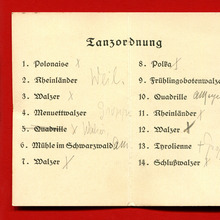 Tanzordnung
1. Polonaise x
2. Rheinländer
3. Walzer x
4. Menuettwalzer
5. Quadrille x
6. Mühle im Schwarzwald
7. Walzer x
8. Polka x
9. Frühlingsbotenwalzer
10. Quadrille
11. Rheinländer x
12. Walzer x
13. Tyrolienne
14. Schlußwalzer x